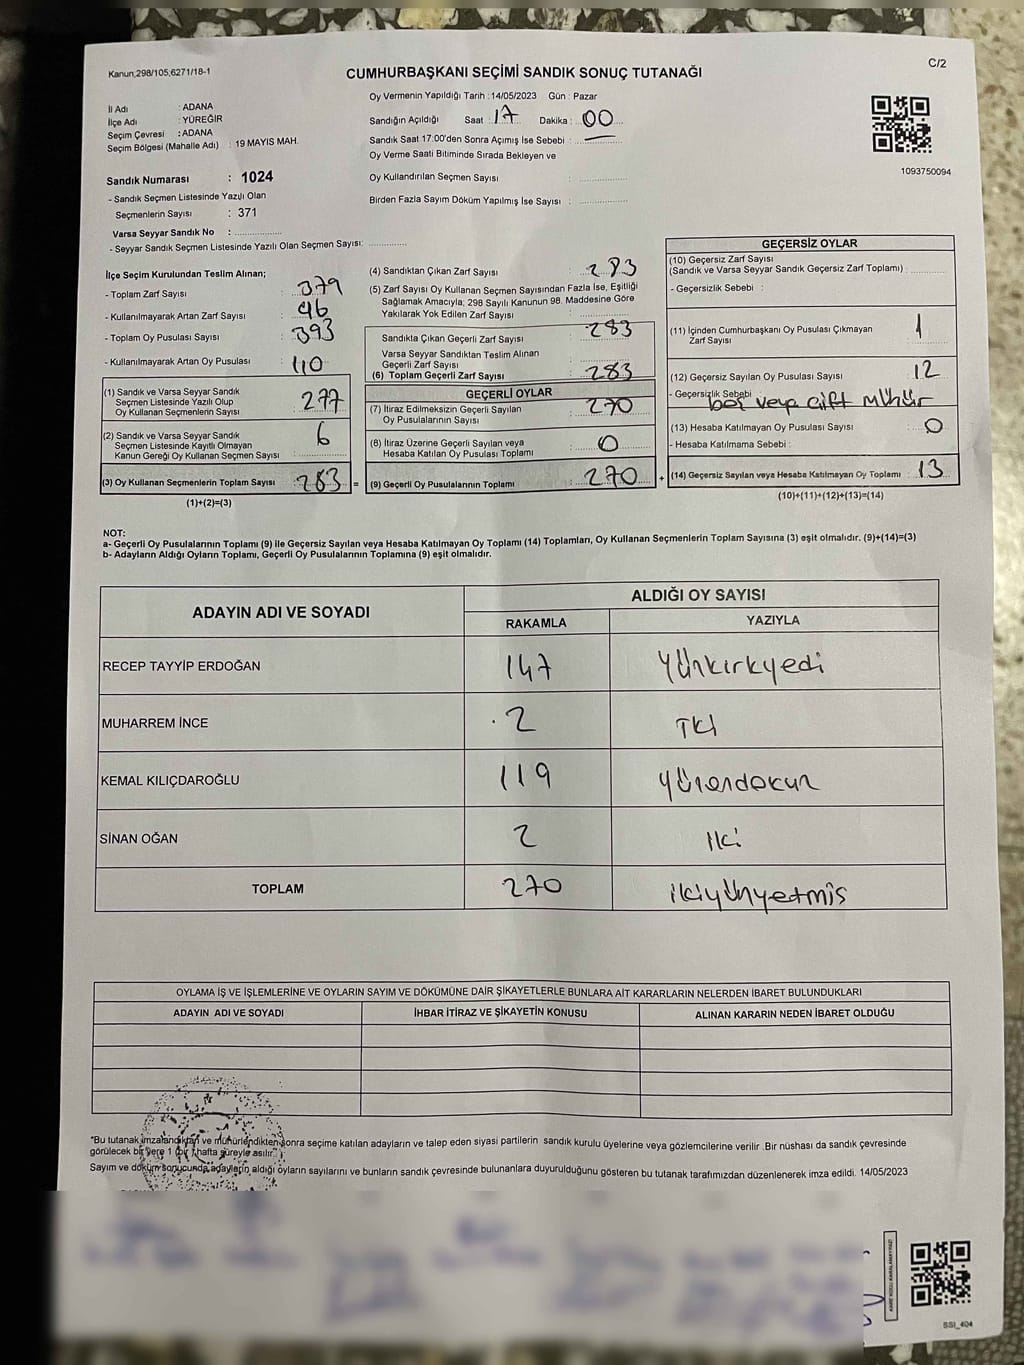 Kanun,298/105,6271/18-1
CUMHURBAŞKANI SEÇİMİ SANDIK SONUÇ TUTANAĞI
C/2
İl Adı : ADANA
İlçe Adı : YÜREĞİR
Seçim Çevresi : ADANA
Seçim Bölgesi (Mahalle Adı) : 19 MAYIS MAH.
Sandık Numarası : 1024
- Sandık Seçmen Listesinde Yazılı Olan
Seçmenlerin Sayısı : 371
Varsa Seyyar Sandık No :
- Seyyar Sandık Seçmen Listesinde Yazılı Olan Seçmen Sayısı:
Oy Vermenin Yapıldığı Tarih : 14/05/2023 Gün : Pazar
Sandığın Açıldığı Saat : 17 Dakika : 00
Sandık Saat 17:00'den Sonra Açımış İse Sebebi : —
Oy Verme Saati Bitiminde Sırada Bekleyen ve
Oy Kullandırılan Seçmen Sayısı :
Birden Fazla Sayım Döküm Yapılmış İse Sayısı :
1093750094
İlçe Seçim Kurulundan Teslim Alınan;
- Toplam Zarf Sayısı : 379
- Kullanılmayarak Artan Zarf Sayısı : 96
- Toplam Oy Pusulası Sayısı : 393
- Kullanılmayarak Artan Oy Pusulası : 110
(1) Sandık ve Varsa Seyyar Sandık
Seçmen Listesinde Yazılı Olup
Oy Kullanan Seçmenlerin Sayısı : 277
(2) Sandık ve Varsa Seyyar Sandık
Seçmen Listesinde Kayıtlı Olmayan
Kanun Gereği Oy Kullanan Seçmen Sayısı : 6
(3) Oy Kullanan Seçmenlerin Toplam Sayısı : 283 =
(1)+(2)=(3)
(4) Sandıktan Çıkan Zarf Sayısı : 283
(5) Zarf Sayısı Oy Kullanan Seçmen Sayısından Fazla İse, Eşitliği
Sağlamak Amacıyla; 298 Sayılı Kanunun 98. Maddesine Göre
Yakılarak Yok Edilen Zarf Sayısı :
Sandıkla Çıkan Geçerli Zarf Sayısı : 283
Varsa Seyyar Sandıktan Teslim Alınan
Geçerli Zarf Sayısı :
(6) Toplam Geçerli Zarf Sayısı : 283
GEÇERLİ OYLAR
(7) İtiraz Edilmeksizin Geçerli Sayılan
Oy Pusulasının Sayısı : 270
(8) İtiraz Üzerine Geçerli Sayılan veya
Hesaba Katılan Oy Pusulası Toplamı : 0
(9) Geçerli Oy Pusulalarının Toplamı : 270 +
GEÇERSİZ OYLAR
(10) Geçersiz Zarf Sayısı
(Sandık ve Varsa Seyyar Sandık Geçersiz Zarf Toplamı) :
- Geçersizlik Sebebi :
(11) İçinden Cumhurbaşkanı Oy Pusulası Çıkmayan
Zarf Sayısı : 1
(12) Geçersiz Sayılan Oy Pusulası Sayısı : 12
- Geçersizlik Sebebi : boş veya çift mühür
(13) Hesaba Katılmayan Oy Pusulası Sayısı : 0
- Hesaba Katılmama Sebebi :
(14) Geçersiz Sayılan veya Hesaba Katılmayan Oy Toplamı : 13
(10)+(11)+(12)+(13)=(14)
NOT:
a- Geçerli Oy Pusulalarının Toplamı (9) ile Geçersiz Sayılan veya Hesaba Katılmayan Oy Toplamı (14) Toplamları, Oy Kullanan Seçmenlerin Toplam Sayısına (3) eşit olmalıdır. (9)+(14)=(3)
b- Adayların Aldığı Oyların Toplamı, Geçerli Oy Pusulalarının Toplamına (9) eşit olmalıdır.
ADAYIN ADI VE SOYADI
ALDIĞI OY SAYISI
RAKAMLA YAZIYLA
RECEP TAYYİP ERDOĞAN 147 Yüzkırkyedi
MUHARREM İNCE 2 İki
KEMAL KILIÇDAROĞLU 119 yüzondokuz
SİNAN OĞAN 2 iki
TOPLAM 270 ikiyüzyetmiş
OYLAMA İŞ VE İŞLEMLERİNE VE OYLARIN SAYIM VE DÖKÜMÜNE DAİR ŞİKAYETLERLE BUNLARA AİT KARARLARIN NELERDEN İBARET BULUNDUKLARI
ADAYIN ADI VE SOYADI İHBAR İTİRAZ VE ŞİKAYETİN KONUSU ALINAN KARARIN NEDEN İBARET OLDUĞU
"Bu tutanak imzalandıktan ve mühürlendikten sonra seçime katılan adayların ve talep eden siyasi partilerin sandık kurulu üyelerine veya gözlemcilerine verilir .Bir nüshası da sandık çevresinde
görülecek bir yere 1 (bir) hafta süreyle asılır.
Sayım ve döküm sonucunda adayların aldığı oyların sayılarını ve bunların sandık çevresinde bulunanlara duyurulduğunu gösteren bu tutanak tarafımızdan düzenlenerek imza edildi. 14/05/2023
SSI_404